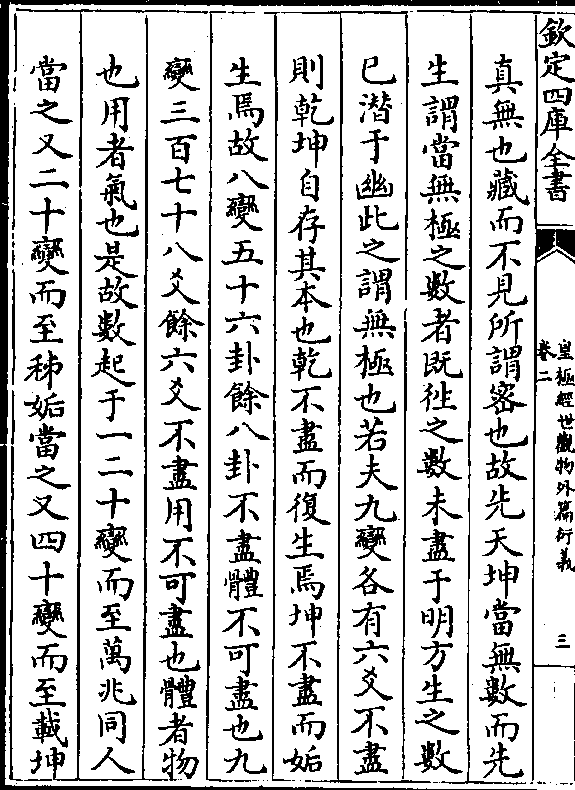 欽定四庫全書
皇極經世觀物外篇衍義
卷二
三
真無也藏而不見所謂密也故先天坤當無數而先
生謂當無極之數者既徃之數未盡于明方生之數
已潛于幽此之謂無極也若夫九變各有六爻不盡
則乾坤自存其本也乾不盡而復生焉坤不盡而姤
生焉故八變五十六卦餘八卦不盡體不可盡也九
變三百七十八爻餘六爻不盡用不可盡也體者物
也用者氣也是故數起于一二十變而至萬兆同人
當之又二十變而至秭姤當之又四十變而至載坤